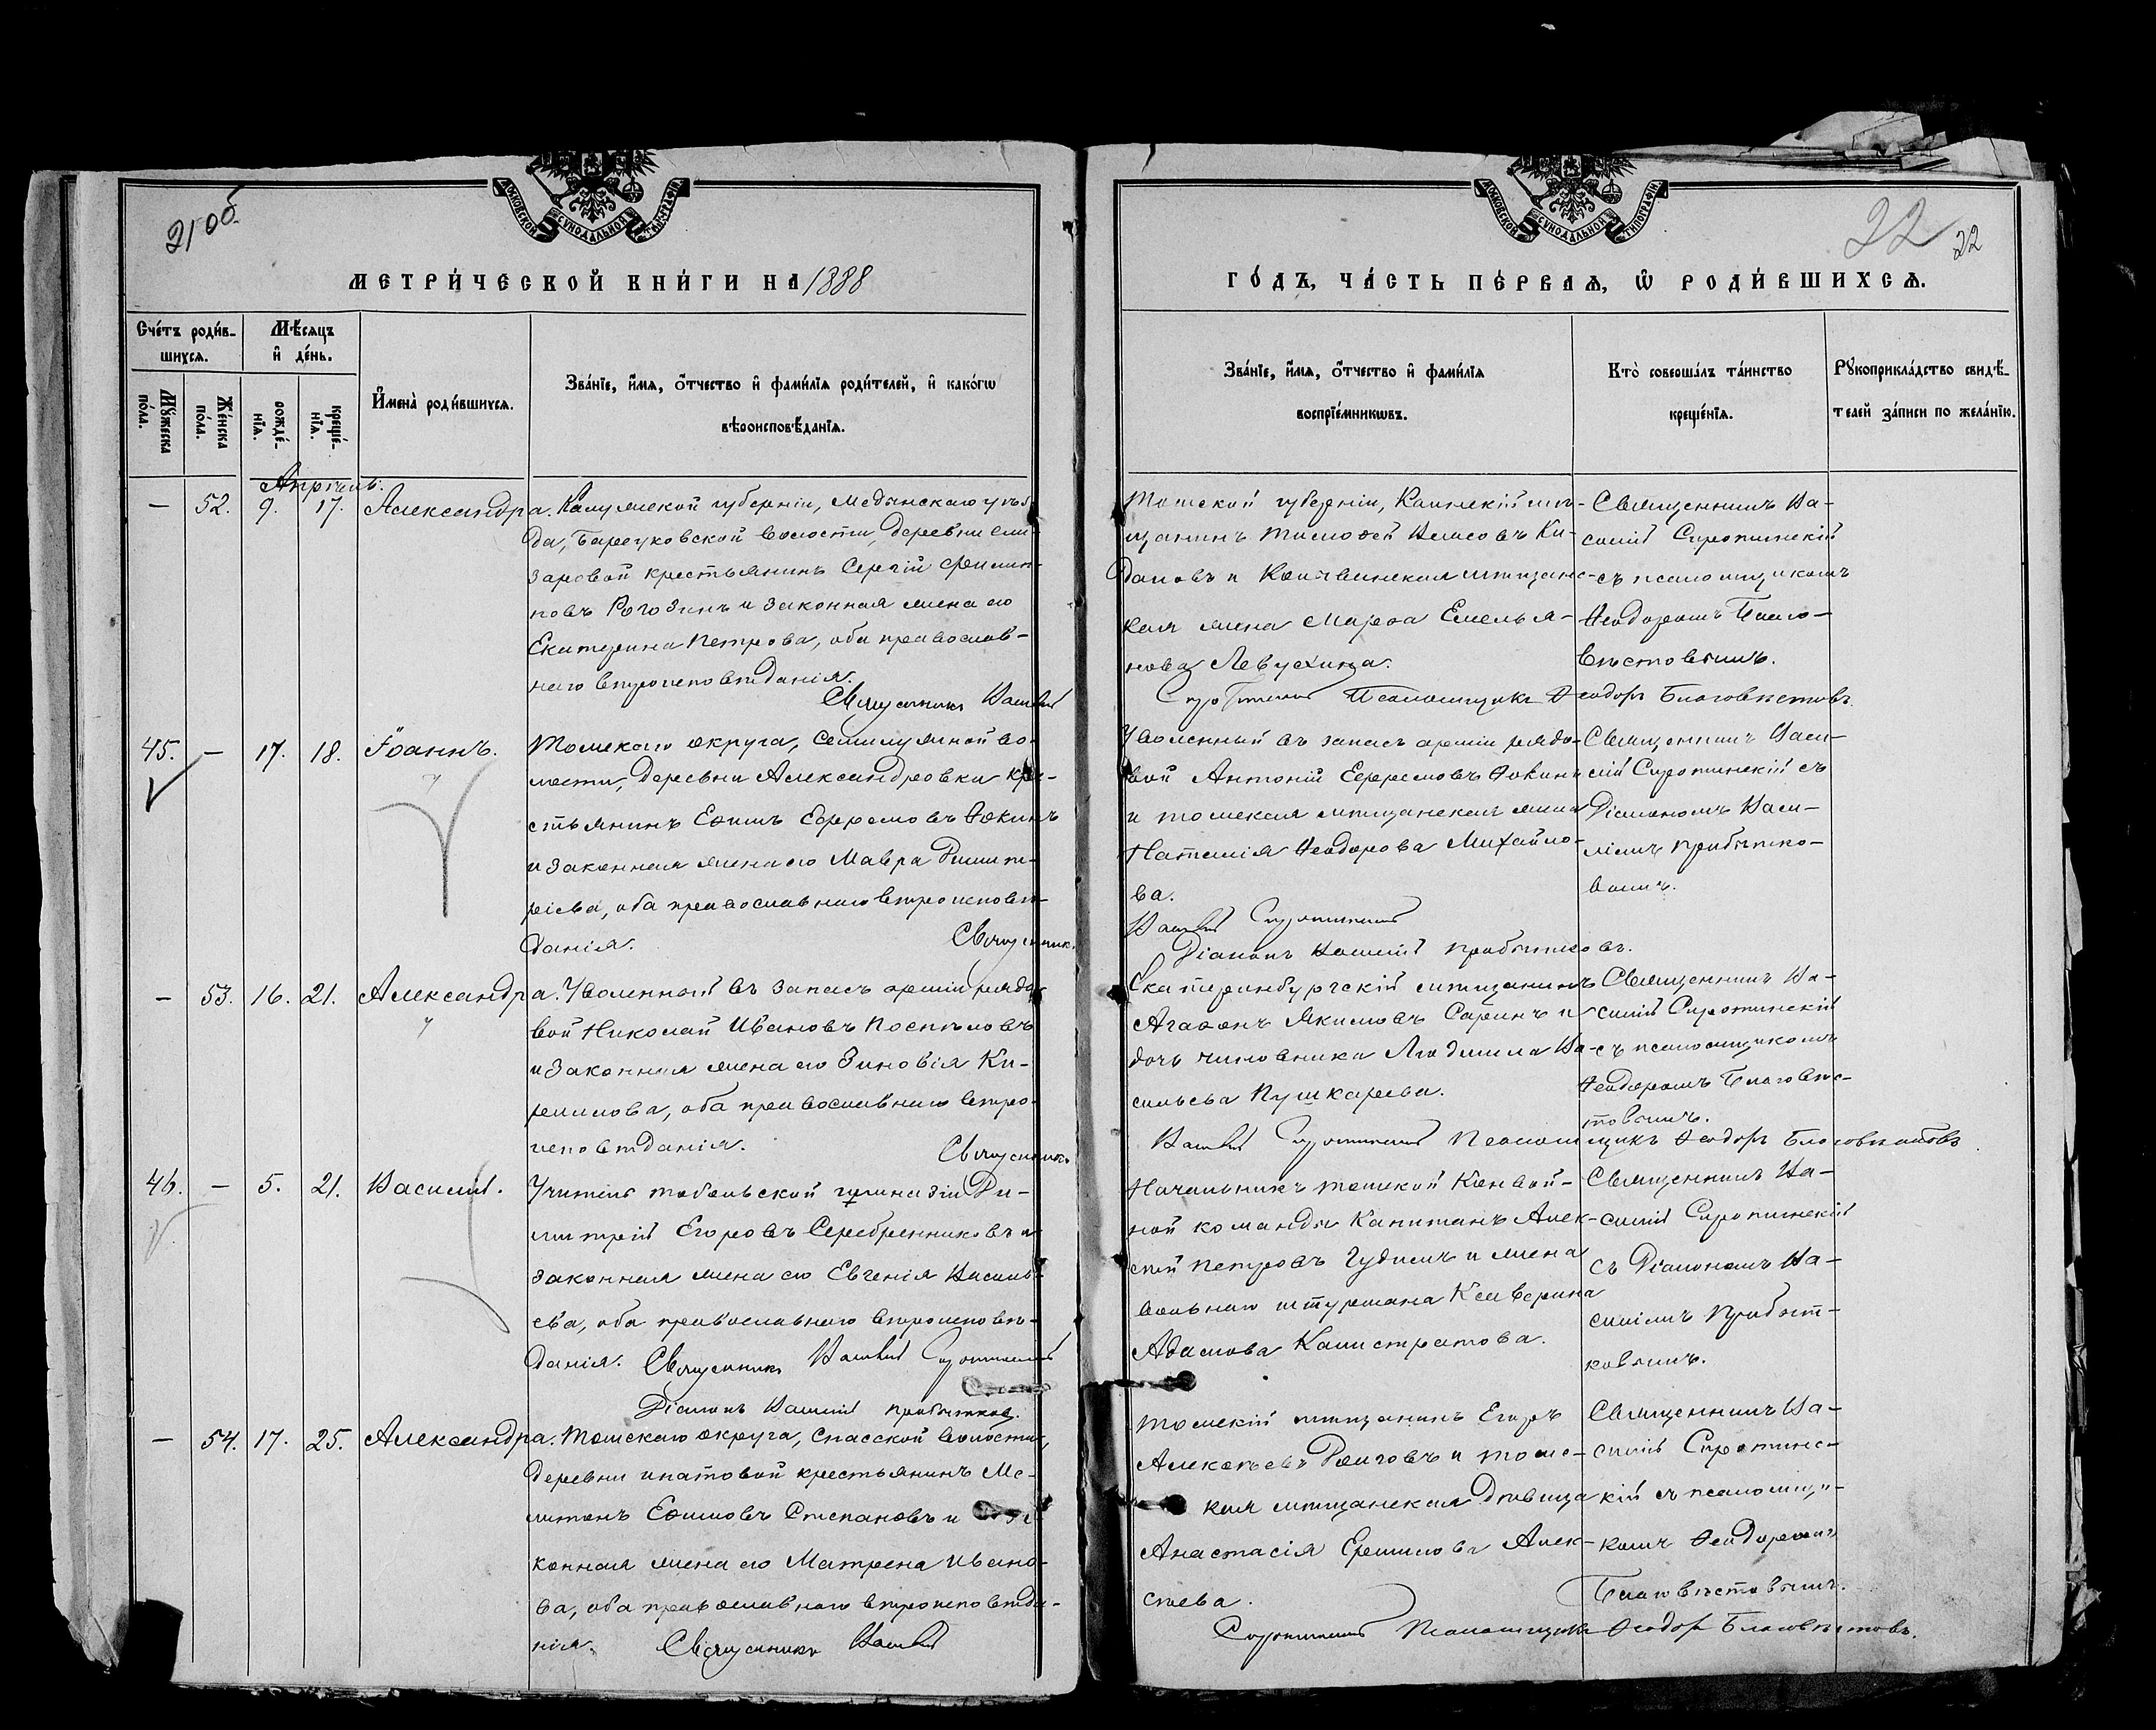 21 об.
МОСКОВСКОЙ СѴНОДАЛЬНОЙ ТИПОГРАФІИ
МЕТРИ́ЧЕСКОЙ КНИ́ГИ НА 1888
Сче́тъ роди́в-
шихсѧ.
Мѣ́сѧцъ
и҆ де́нь.
Мꙋ́жеска по́ла.
Же́нска по́ла.
рожде́-
нїѧ.
креще́-
нїѧ.
И҆мена̀ роди́вшихсѧ.
Зва́нїе, и҆́мѧ, о҆́тчество и҆ фами́лїѧ роди́телей, и҆ како́гѡ
вѣроисповѣ́данїѧ.
Апрѣль.
— 52. 9. 17. Александра. Калужской губерніи, Медынскаго уѣз-
да, волости, деревни Ели-
заровой крестьянинъ Сергій Филип-
повъ Рогозинъ и законная жена его
Екатерина Петрова, оба православ-
наго вѣроисповѣданія.
Священникъ Василій
45. — 17. 18. Іоаннъ. Томскаго округа, Семилужной во-
лости, деревни Александровки кре-
стьянинъ Еѳимъ Ефремовъ Ѳокинъ
и законная жена его Мавра Димит-
ріева, оба православнаго вѣроисповѣ-
данія. Священник.
— 53. 16. 21. Александра. Уволенный въ запасъ арміи рядо-
вой Николай Ивановъ Поспѣловъ
и законная жена его Зиновія Ки-
рилова, оба православнаго вѣро-
исповѣданія. Священник.
46. — 5. 21. Василій. Учитель тобольской гимназіи Ди-
митрій Егоровъ Серебренниковъ и
законная жена его Евгенія Василь-
ева, оба православнаго вѣроисповѣ-
данія. Священникъ Василій Сиротинскій
Діаконъ Василій Прибытков.
— 54. 17. 25. Александра. Томскаго округа, Спасской волости,
деревни Ипатовой крестьянинъ Ме-
литонъ Еѳимовъ Степановъ и за-
конная жена его Матрена Ивано-
ва, оба православнаго вѣроисповѣда-
нія. Священникъ Василій
22 22
МОСКОВСКОЙ СѴНОДАЛЬНОЙ ТИПОГРАФІИ
ГО́ДЪ, ЧА́СТЬ ПЕ́РВАѦ, Ѡ҆ РОДИ́ВШИХСѦ.
Зва́нїе, и҆́мѧ, о҆́тчество и҆ фами́лїѧ
воспрїе́мникѡвъ.
Кто̀ соверша́лъ та́инство
креще́нїѧ.
Рꙋкоприкла́дство свидѣ́-
телей за́писи по жела́нїю.
Томской губерніи, Каинскій мѣ-
щанинъ Тимоѳей Власовъ Ки-
и мѣщанс-
кая жена Марѳа Емелья-
нова
Священникъ Ва-
силій Сиротинскій
съ псаломщикомъ
Ѳеодоромъ Благо-
вѣстовымъ.
Сиротинскій Псаломщикъ Ѳеодоръ Благовѣстовъ.
Уволенный въ запасъ арміи рядо-
вой Антоній Ефремовъ Ѳокинъ
и томская мѣщанская жена
Наталія Ѳеодорова Михайло-
ва.
Священникъ Васи-
лій Сиротинскій съ
Діакономъ Васи-
ліемъ Прибытко-
вымъ.
Василій Сиротинскій
Діаконъ Василій Прибытковъ.
Екатеринбургскій мѣщанинъ
Агаѳонъ Якимовъ Саринъ и
дочь чиновника Людмила Ва-
сильева Пушкарева.
Священникъ Ва-
силій Сиротинскій
съ псаломщикомъ
Ѳеодоромъ Благовѣс-
товымъ.
Василій Сиротинскій Псаломщикъ Ѳеодоръ Благовѣстовъ
Начальникъ томской Конвой-
ной команды Капитанъ Алек-
сѣй Петровъ Гудимъ и жена
вольнаго штурмана Ксаверина
Адамова Калистратова.
Священникъ Ва-
силій Сиротинскій
съ Діакономъ Ва-
силіемъ Прибыт-
ковымъ.
Томскій мѣщанинъ Егоръ
Алексѣевъ и томс-
кая мѣщанская дѣвица
Анастасія Ермилова Алек-
сѣева.
Священникъ Ва-
силій Сиротинс-
кій съ псаломщи-
комъ Ѳеодоромъ
Благовѣстовымъ.
Сиротинскій Псаломщикъ Ѳеодоръ Благовѣстовъ.